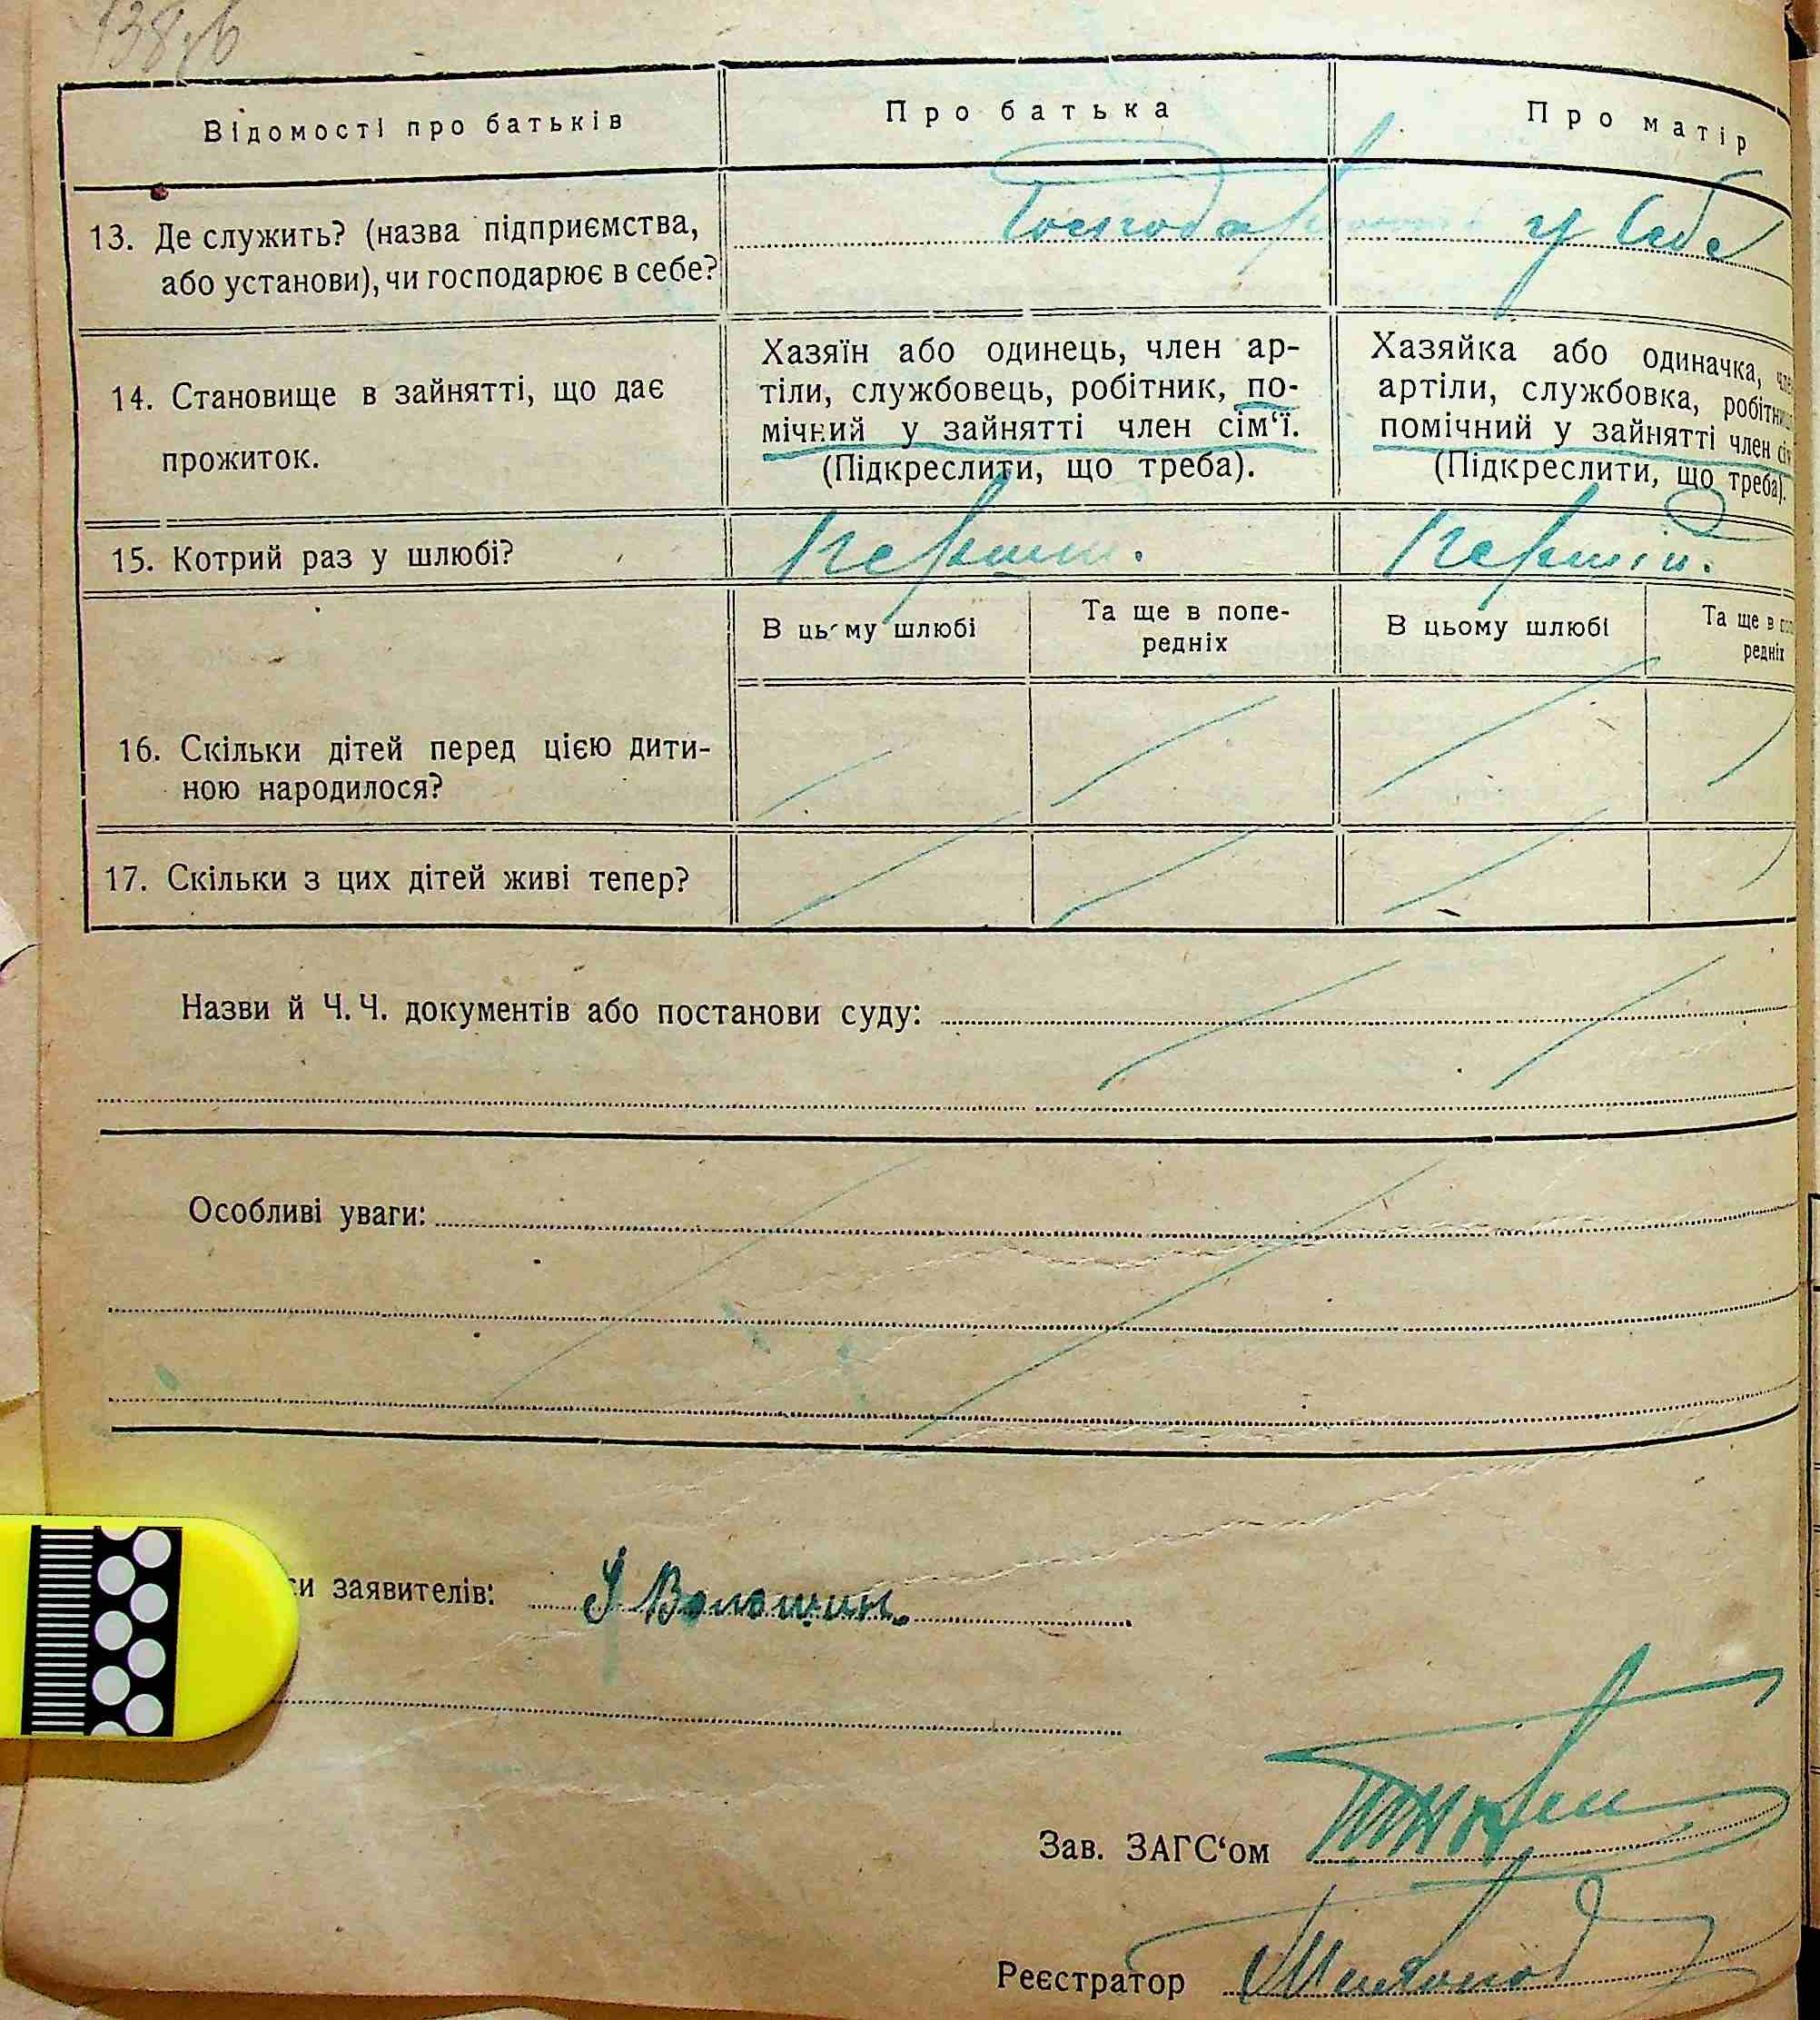 138зв
Відомості про батьків
Про батька
Про матір
13. Де служить? (назва підприємства,
або установи), чи господарює в себе?
Господар у себе
14. Становище в зайнятті, що дає
прожиток.
Хазяїн або одинець, член ар-
тіли, службовець, робітник, по-
мічний у зайнятті член сім‘ї.
(Підкреслити, що треба).
Хазяйка або одиначка, чле
артіли, службовка, робітниця
помічний у зайнятті член сім
(Підкреслити, що треба).
15. Котрий раз у шлюбі?
Перший.
Перший.
В цьому шлюбі
Та ще в попе-
редніх
В цьому шлюбі
Та ще в по
редніх
16. Скільки дітей перед цією дити-
ною народилося?
17. Скільки з цих дітей живі тепер?
Назви й Ч. Ч. документів або постанови суду:
Особливі уваги:
си заявителів: Волошин.
Зав. ЗАГС‘ом
Реєстратор